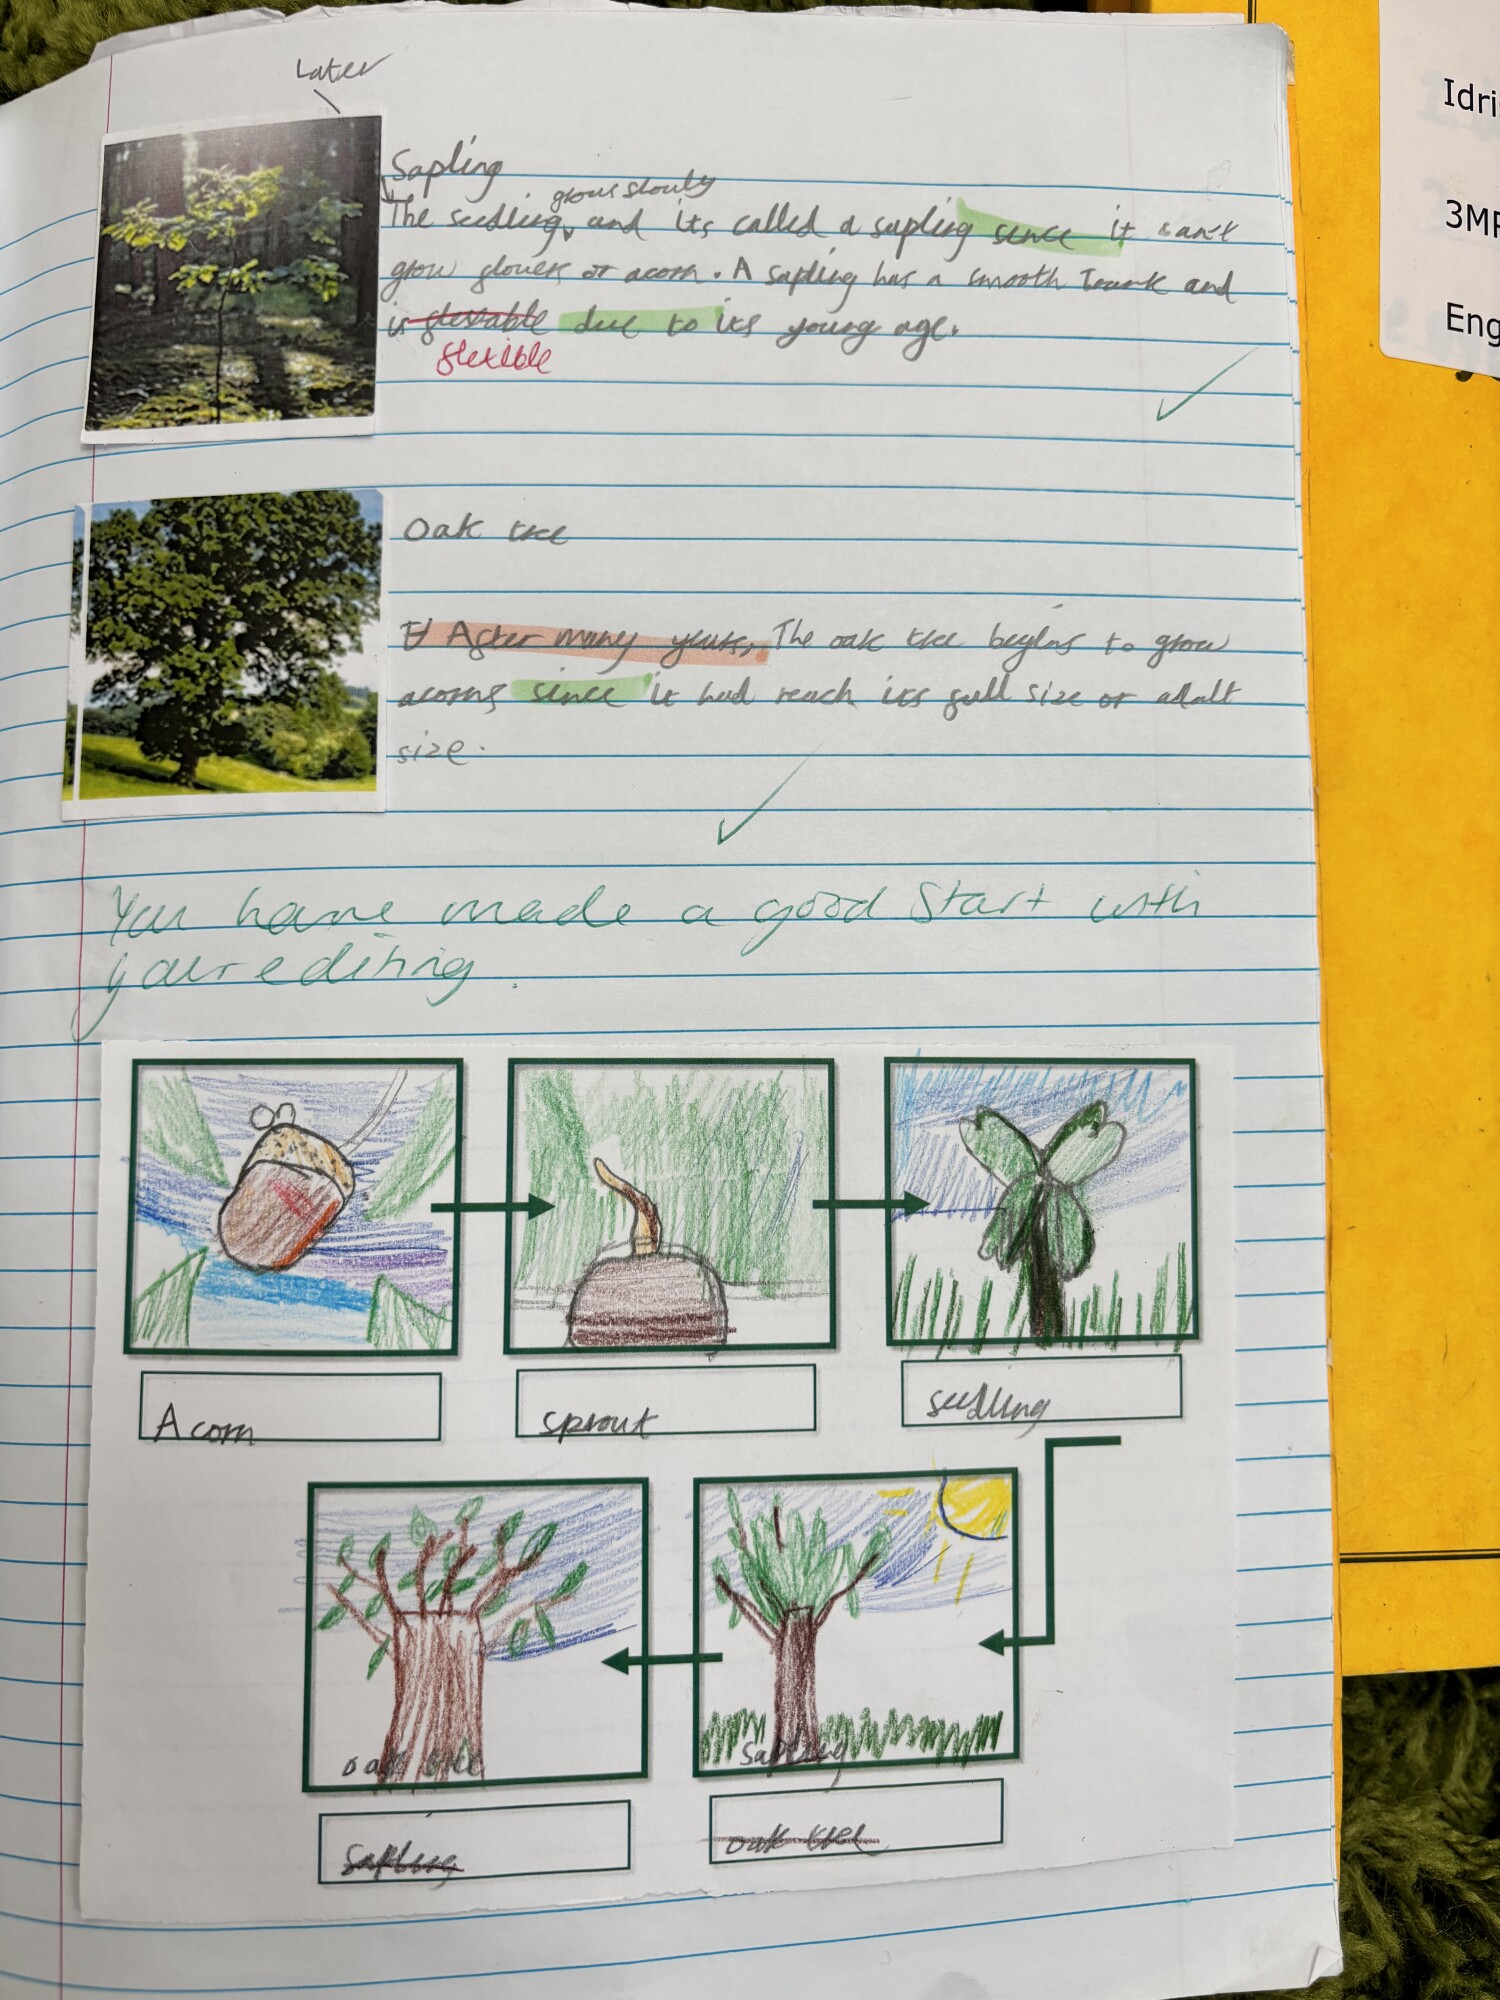 Later
Sapling
grows slowly
The seedling, and its called a sapling sence it can't
grow flowers or acorn. A sapling has a smooth Trunk and
is flexeable due to its young age.
flexible
Oak tree
After many years, The oak tree begins to grow
acorns since it had reach its full size or adalt
size.
You have made a good Start with
your editing.
Acorn
sprout
seedling
oak tree
Sapling
Sapling
oak tree
Idris
3MP
Eng